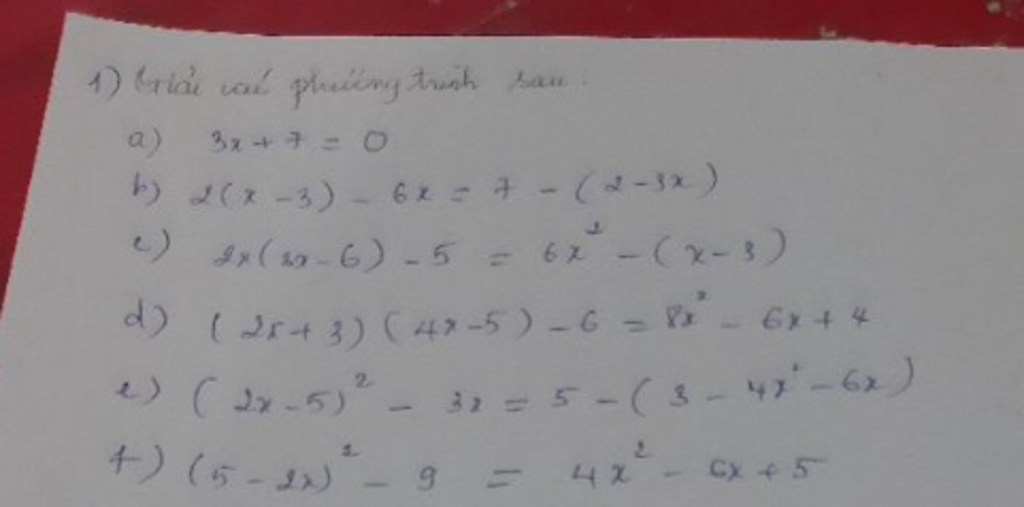 1) Giải các phường trình sau.
a) 3x + 7 = 0
b) 2(x - 3) - 6x = 7 - (2 - 3x)
c) 2x(3x - 6) - 5 = 6x² - (x - 3)
d) (2x + 3)(4x - 5) - 6 = 8x² - 6x + 4
e) (2x - 5)² - 3x = 5 - (3 - 4x² - 6x)
f) (5 - 2x)² - 9 = 4x² - 6x + 5